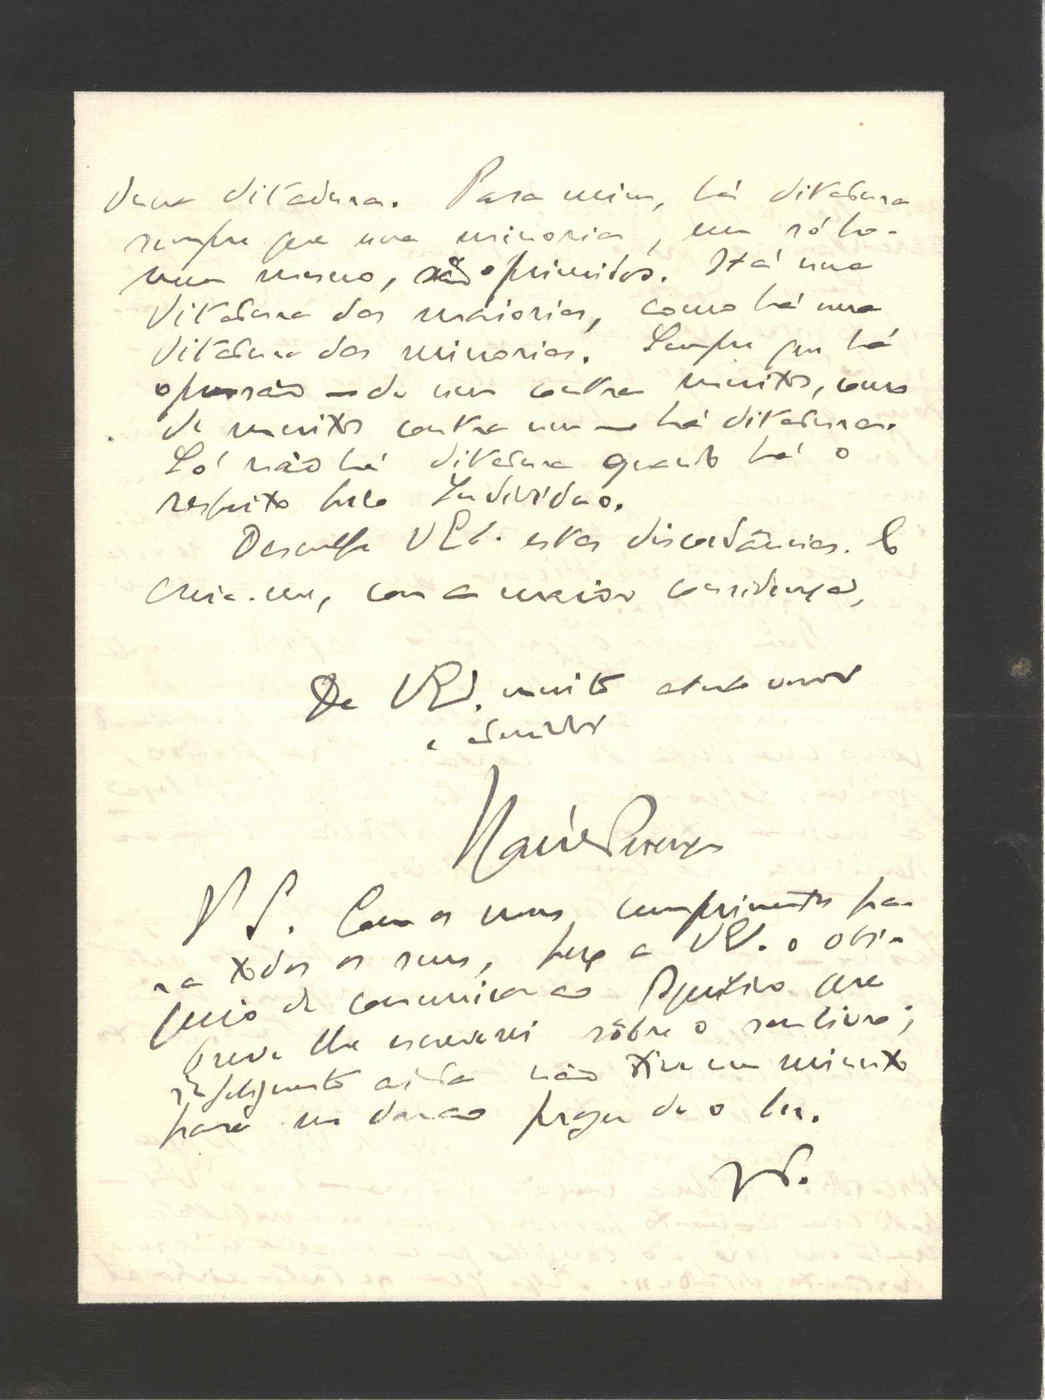 duma ditadura. Para mim, há ditadura
sempre que uma minoria, um só ho-
mem mesmo, são oprimidos. Há uma
ditadura das maiorias, como há uma
ditadura das minorias. Sempre que há
opressão — de um contra muitos, como
de muitos contra um — há ditadura.
Só não há ditadura quando há o
respeito pelo Indivíduo.
Desculpe V. Ex. estas discordâncias. E
creia-me, com a maior consideração,
De V. Ex. muito atento venor
e admirador
P. S. Com os meus cumprimentos pa-
ra todos os seus, peço a V. Ex. o obsé-
quio de comunicar ao que
breve lhe escreverei sôbre o seu livro;
infelizmente ainda não tive um minuto
para me dar ao prazer de o ler.